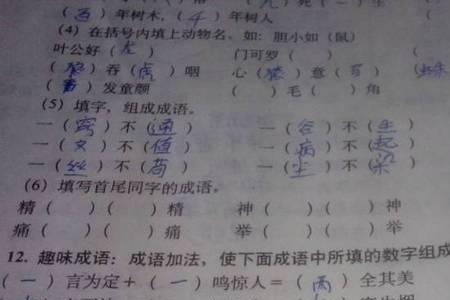 （百）年树木，（十）年树人
（4）在括号内填上动物名。如：胆小如（鼠）
叶公好（龙） 门可罗（ ）
（狼）吞（虎）咽 心（猿）意（ ）
（ ）发童颜 （ ）毛（ ）角
（5）填字，组成成语。
一（窍）不（通） 一（ ）不（ ）
一（文）不（值） 一（病）不（起）
一（丝）不（苟） 一（尘）不（染）
（6）填写首尾同字的成语。
精（ ）（ ）精 神（ ）（ ）神
痛（ ）（ ）痛 举（ ）（ ）举
12. 趣味成语：成语加法，使下面成语中所填的数字组成
（一）言为定＋（一）鸣惊人＝（两）全其美